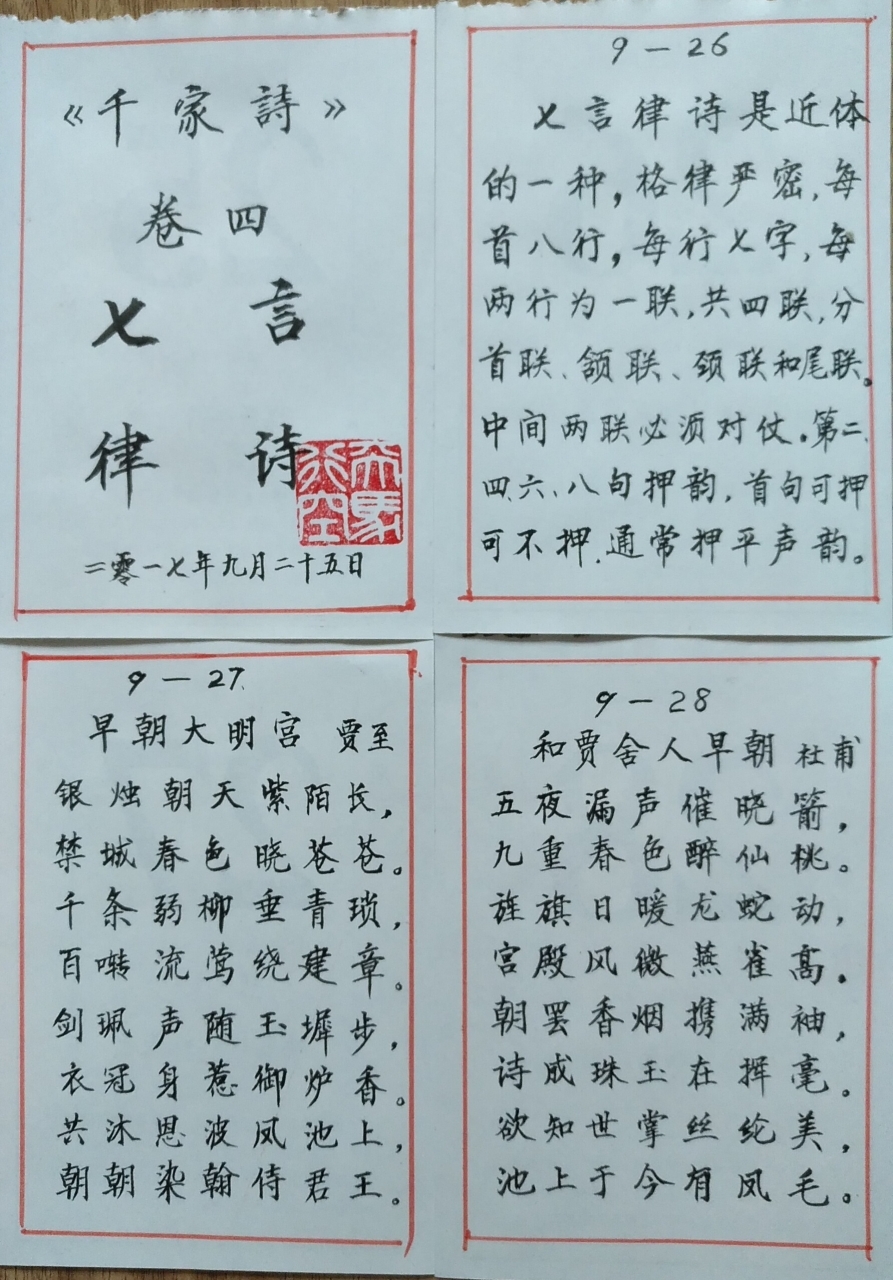 《千家詩》
卷四
七言
律诗
天馬行空
二零一七年九月二十五日
9-26
七言律诗是近体
的一种，格律严密，每
首八行，每行七字，每
两行为一联，共四联，分
首联、颔联、颈联和尾联。
中间两联必须对仗。第二、
四、六、八句押韵，首句可押
可不押，通常押平声韵。
9-27
早朝大明宫 贾至
银烛朝天紫陌长，
禁城春色晓苍苍。
千条弱柳垂青琐，
百啭流莺绕建章。
剑珮声随玉墀步，
衣冠身惹御炉香。
共沐恩波凤池上，
朝朝染翰侍君王。
9-28
和贾舍人早朝 杜甫
五夜漏声催晓箭，
九重春色醉仙桃。
旌旗日暖龙蛇动，
宫殿风微燕雀高。
朝罢香烟携满袖，
诗成珠玉在挥毫。
欲知世掌丝纶美，
池上于今有凤毛。